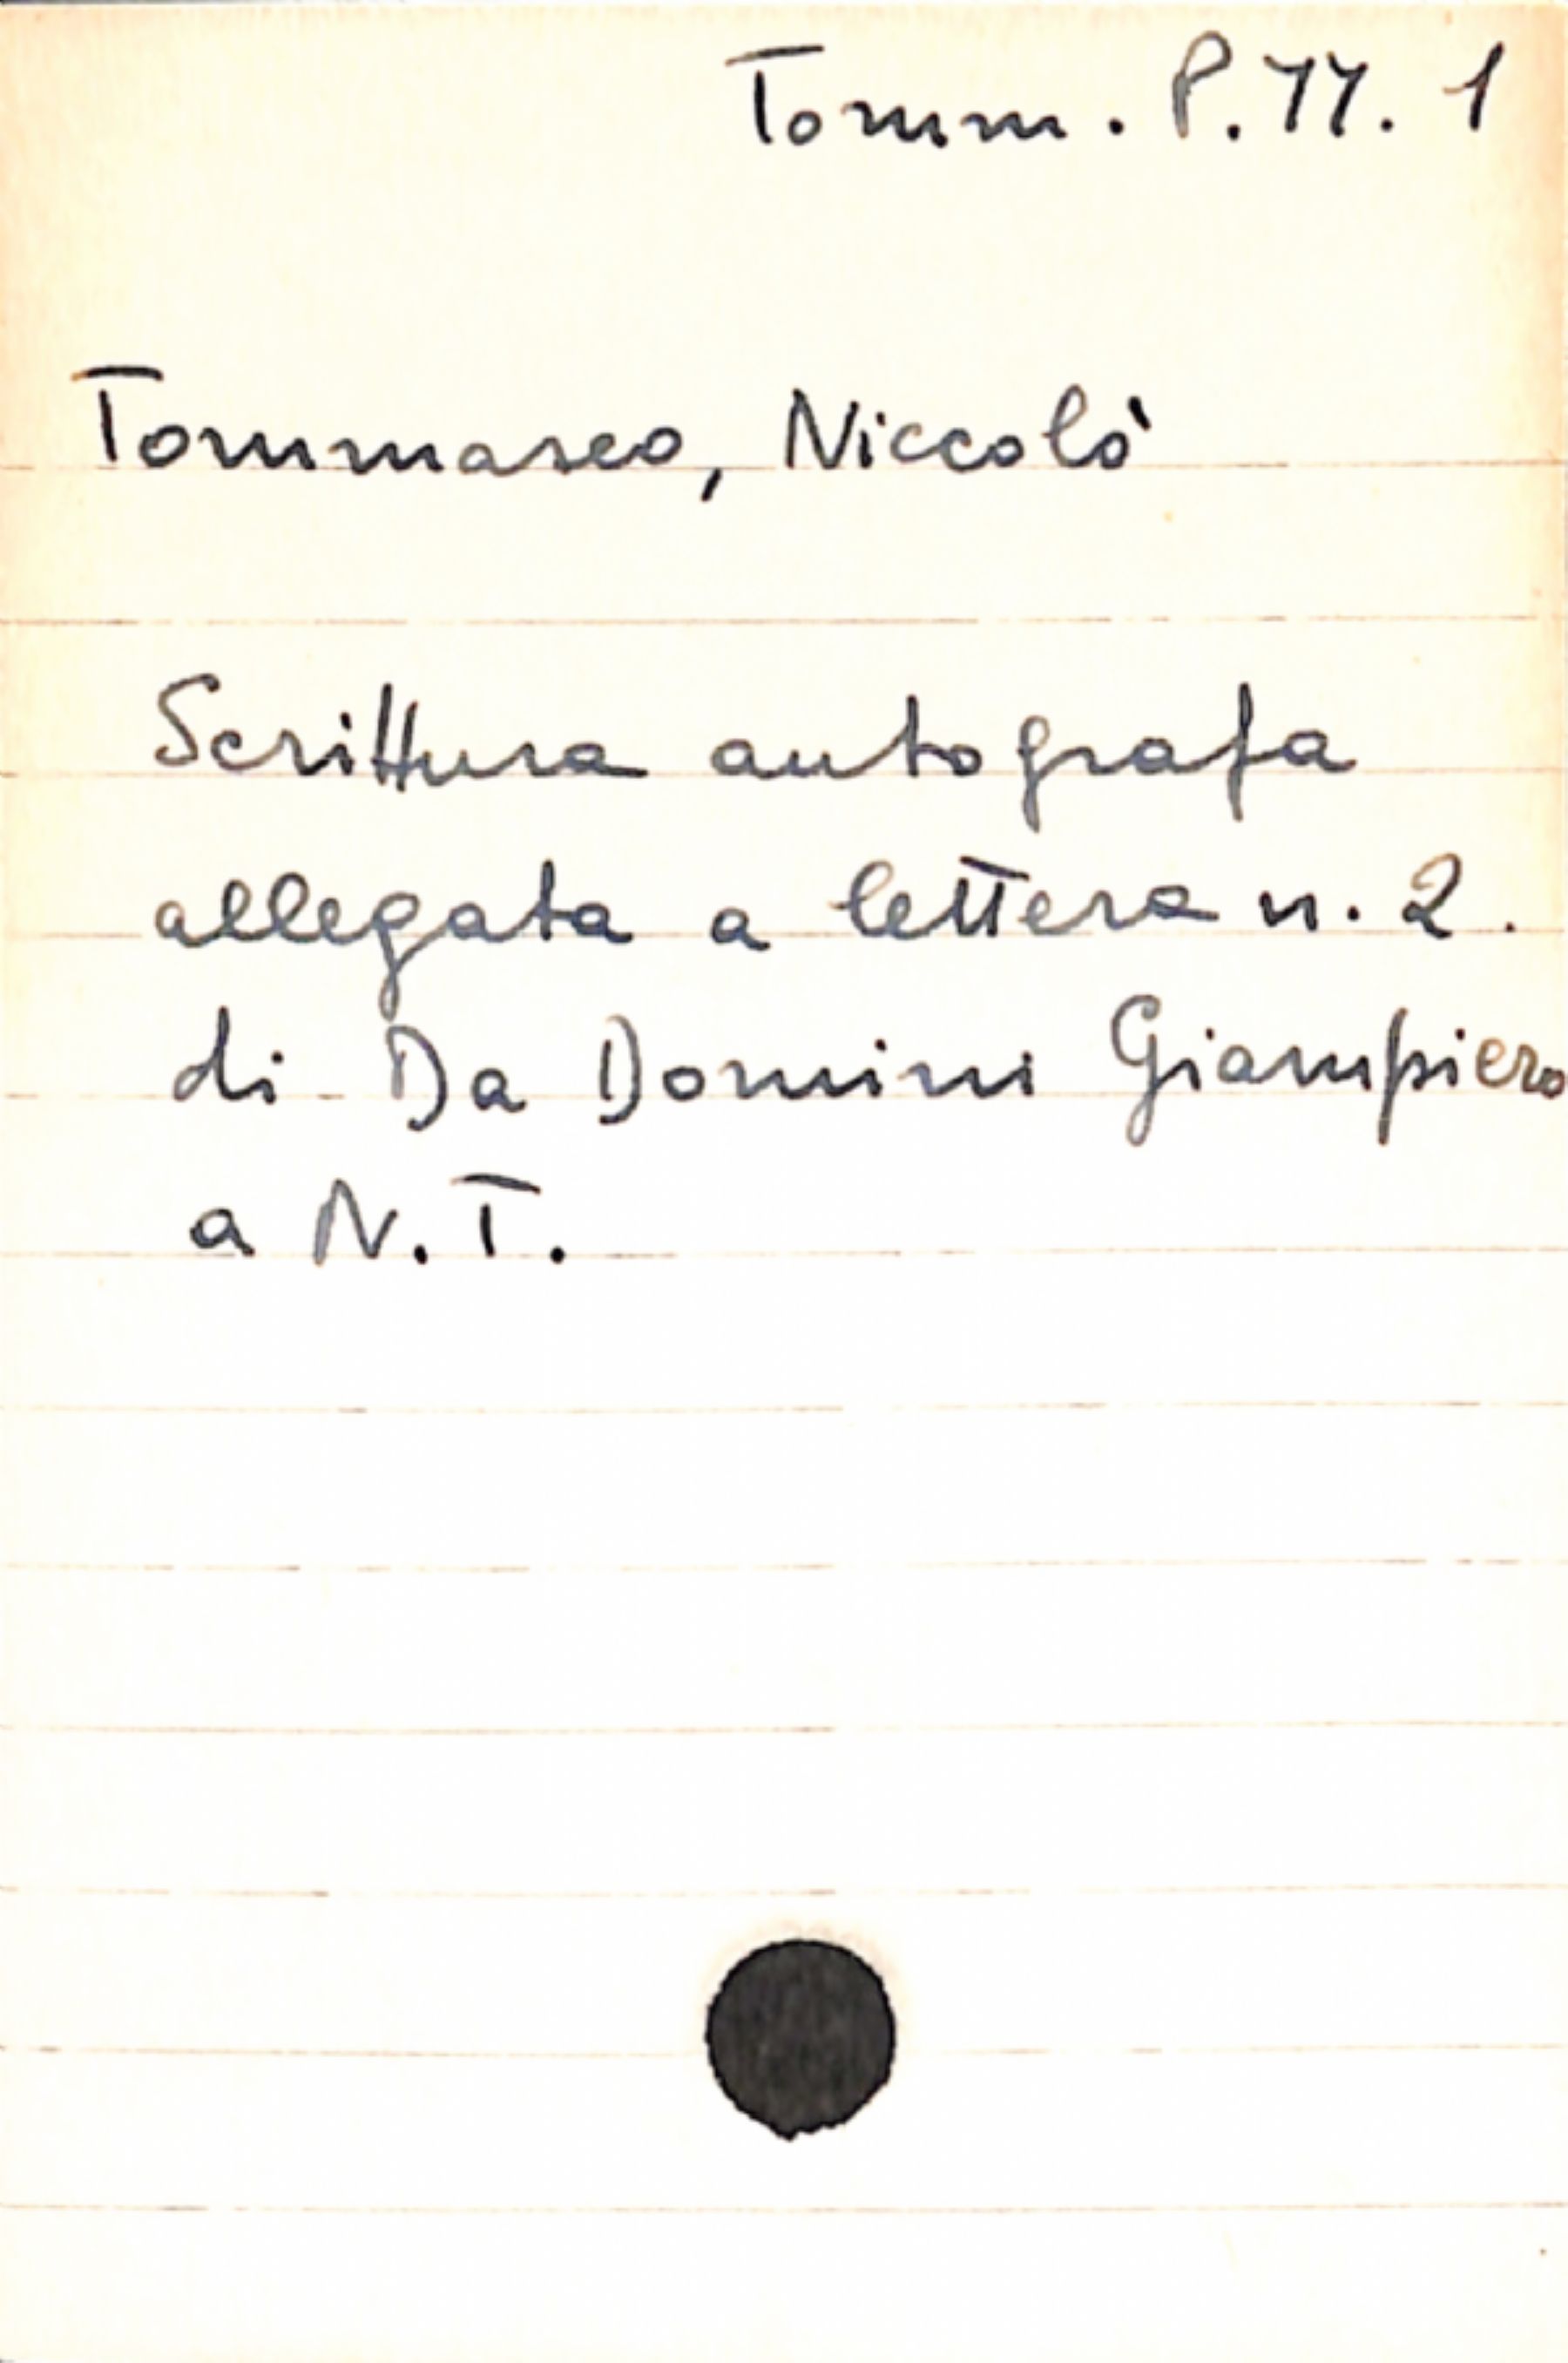 Tomm. P. 77. 1
Tommaseo, Niccolò
Scrittura autografa
allegata a lettera n. 2.
di Da Domini Giampiero
a N. T.